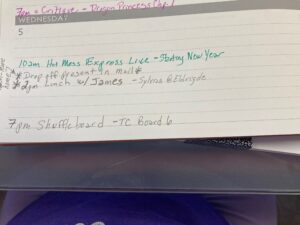 7am - Critique - Dragon Princess Chp 1
WEDNESDAY
5
10am Hot Mess Express Live - Starting New Year
* Drop off present in mail *
* 2pm Lunch w/ James - Sylvias @ Eldrigde
7pm Shuffleboard - TC Board 6